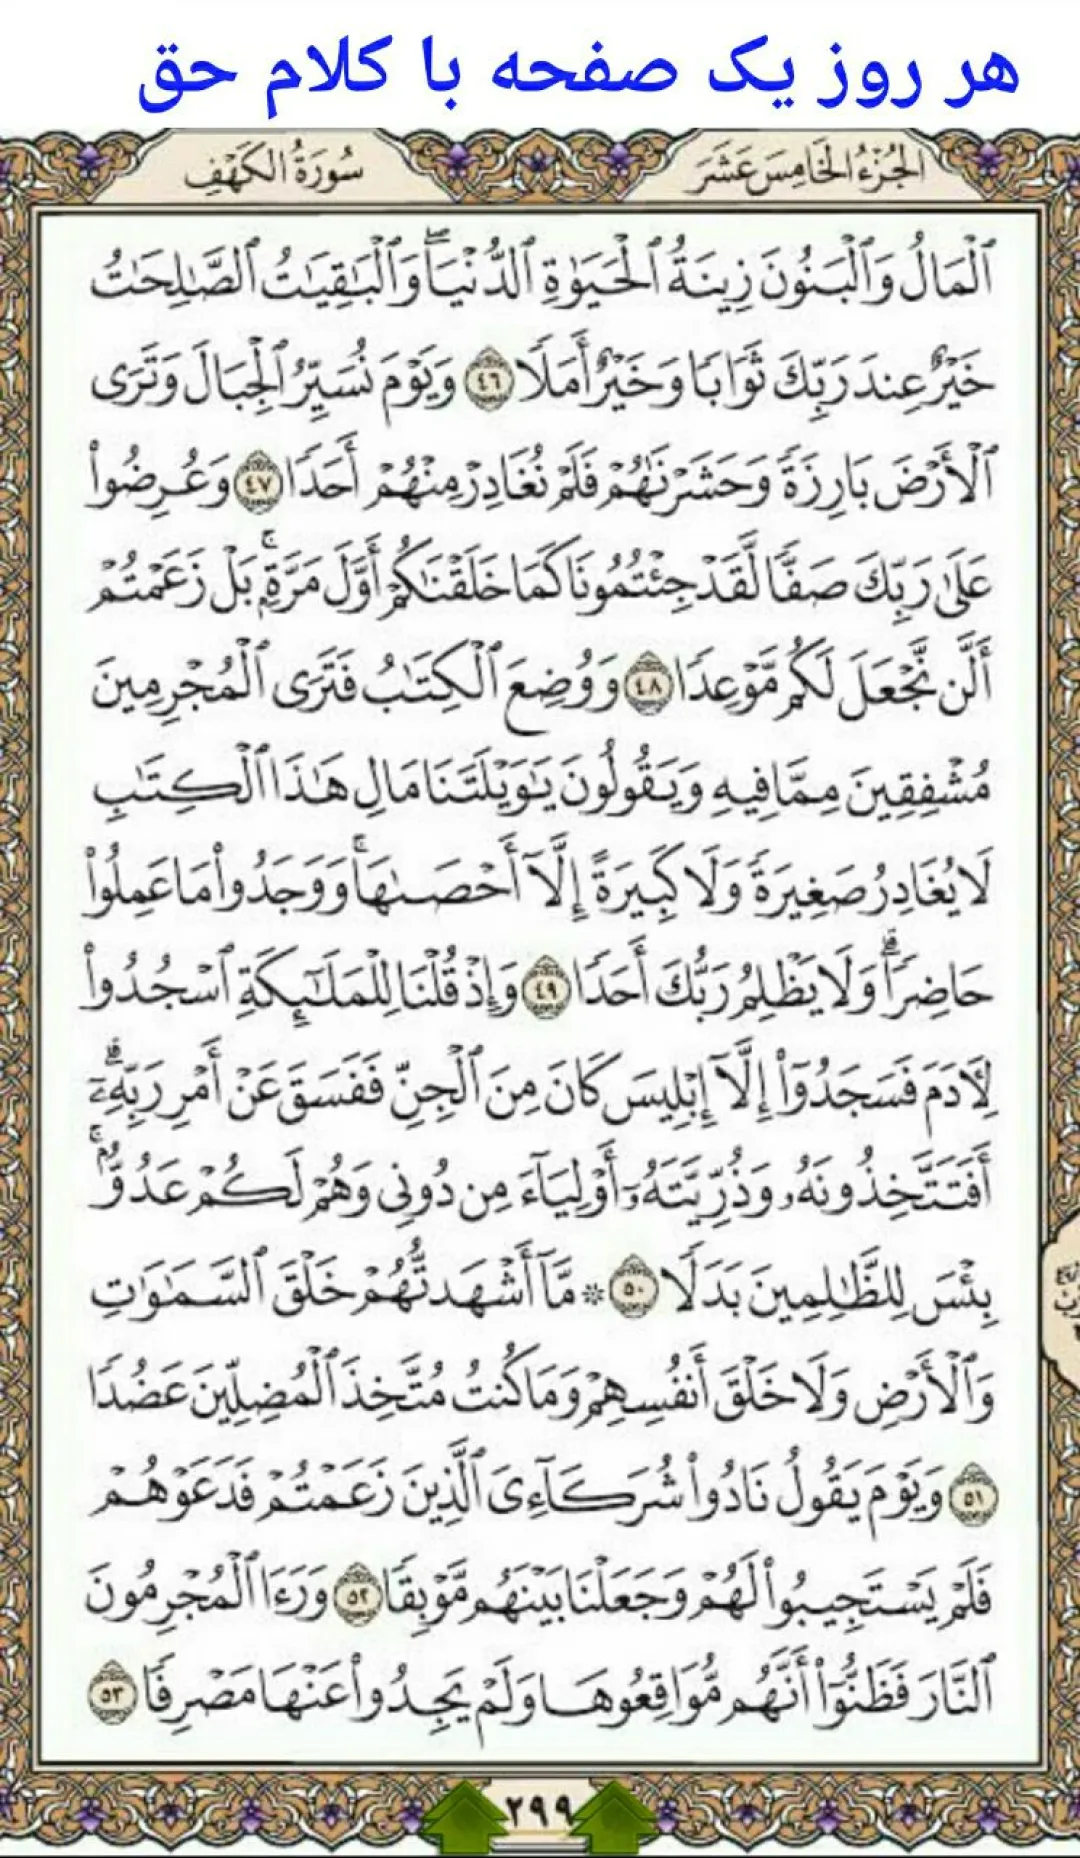 هر روز یک صفحه با کلام حق
الجُزْءُ الخَامِسَ عَشَرَ
سُورَةُ الكَهْفِ
ٱلْمَالُ وَٱلْبَنُونَ زِينَةُ ٱلْحَيَوٰةِ ٱلدُّنْيَا ۖ وَٱلْبَٰقِيَٰتُ ٱلصَّٰلِحَٰتُ
خَيْرٌ عِندَ رَبِّكَ ثَوَابًا وَخَيْرٌ أَمَلًا ٤٦ وَيَوْمَ نُسَيِّرُ ٱلْجِبَالَ وَتَرَى
ٱلْأَرْضَ بَارِزَةً وَحَشَرْنَٰهُمْ فَلَمْ نُغَادِرْ مِنْهُمْ أَحَدًا ٤٧ وَعُرِضُوا۟
عَلَىٰ رَبِّكَ صَفًّا لَّقَدْ جِئْتُمُونَا كَمَا خَلَقْنَٰكُمْ أَوَّلَ مَرَّةٍۭ ۚ بَلْ زَعَمْتُمْ
أَلَّن نَّجْعَلَ لَكُم مَّوْعِدًا ٤٨ وَوُضِعَ ٱلْكِتَٰبُ فَتَرَى ٱلْمُجْرِمِينَ
مُشْفِقِينَ مِمَّا فِيهِ وَيَقُولُونَ يَٰوَيْلَتَنَا مَالِ هَٰذَا ٱلْكِتَٰبِ
لَا يُغَادِرُ صَغِيرَةً وَلَا كَبِيرَةً إِلَّآ أَحْصَىٰهَا ۚ وَوَجَدُوا۟ مَا عَمِلُوا۟
حَاضِرًا ۗ وَلَا يَظْلِمُ رَبُّكَ أَحَدًا ٤٩ وَإِذْ قُلْنَا لِلْمَلَٰٓئِكَةِ ٱسْجُدُوا۟
لِءَادَمَ فَسَجَدُوٓا۟ إِلَّآ إِبْلِيسَ كَانَ مِنَ ٱلْجِنِّ فَفَسَقَ عَنْ أَمْرِ رَبِّهِۦٓ ۗ
أَفَتَتَّخِذُونَهُۥ وَذُرِّيَّتَهُۥٓ أَوْلِيَآءَ مِن دُونِى وَهُمْ لَكُمْ عَدُوٌّۢ ۚ
بِئْسَ لِلظَّٰلِمِينَ بَدَلًا ٥٠ ۞ مَّآ أَشْهَدتُّهُمْ خَلْقَ ٱلسَّمَٰوَٰتِ
وَٱلْأَرْضِ وَلَا خَلْقَ أَنفُسِهِمْ وَمَا كُنتُ مُتَّخِذَ ٱلْمُضِلِّينَ عَضُدًا
٥١ وَيَوْمَ يَقُولُ نَادُوا۟ شُرَكَآءِىَ ٱلَّذِينَ زَعَمْتُمْ فَدَعَوْهُمْ
فَلَمْ يَسْتَجِيبُوا۟ لَهُمْ وَجَعَلْنَا بَيْنَهُم مَّوْبِقًا ٥٢ وَرَءَا ٱلْمُجْرِمُونَ
ٱلنَّارَ فَظَنُّوٓا۟ أَنَّهُم مُّوَاقِعُوهَا وَلَمْ يَجِدُوا۟ عَنْهَا مَصْرِفًا ٥٣
٢٩٩